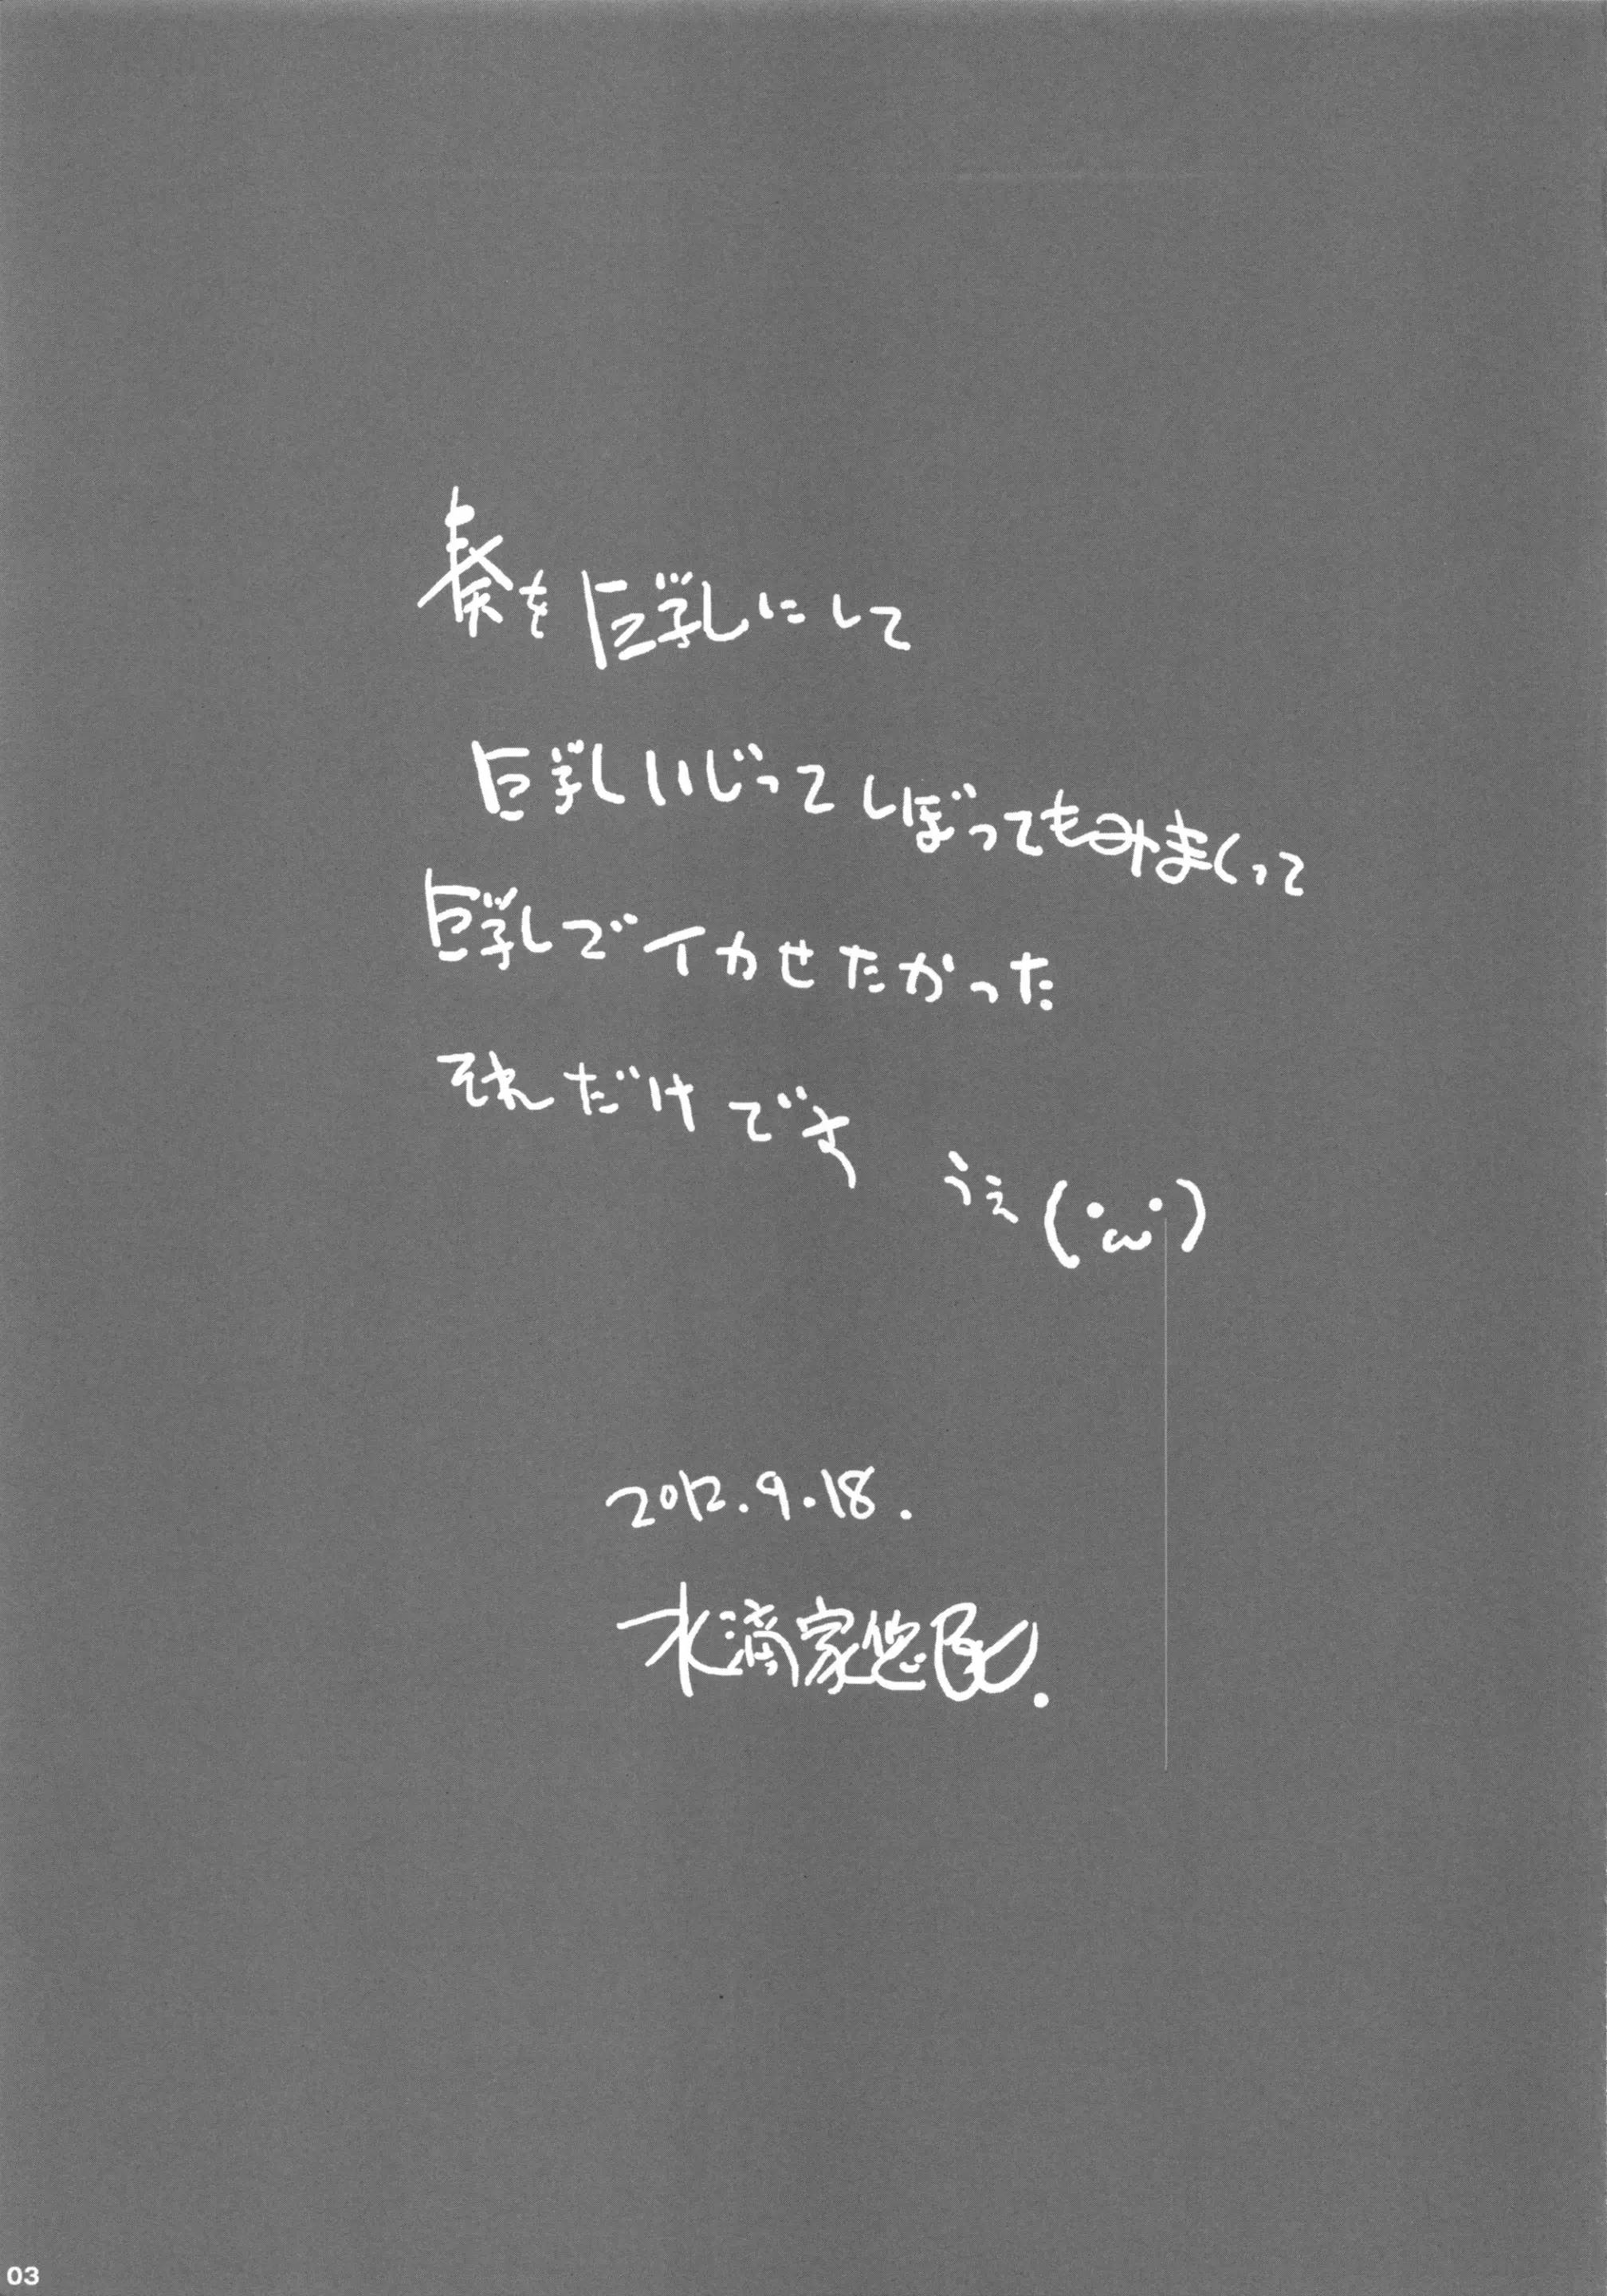 奏を巨乳にして
巨乳いじってしぼってもみまくって
巨乳でイカせたかった
それだけです　うぇ(・ω・)
2012.9.18.
03